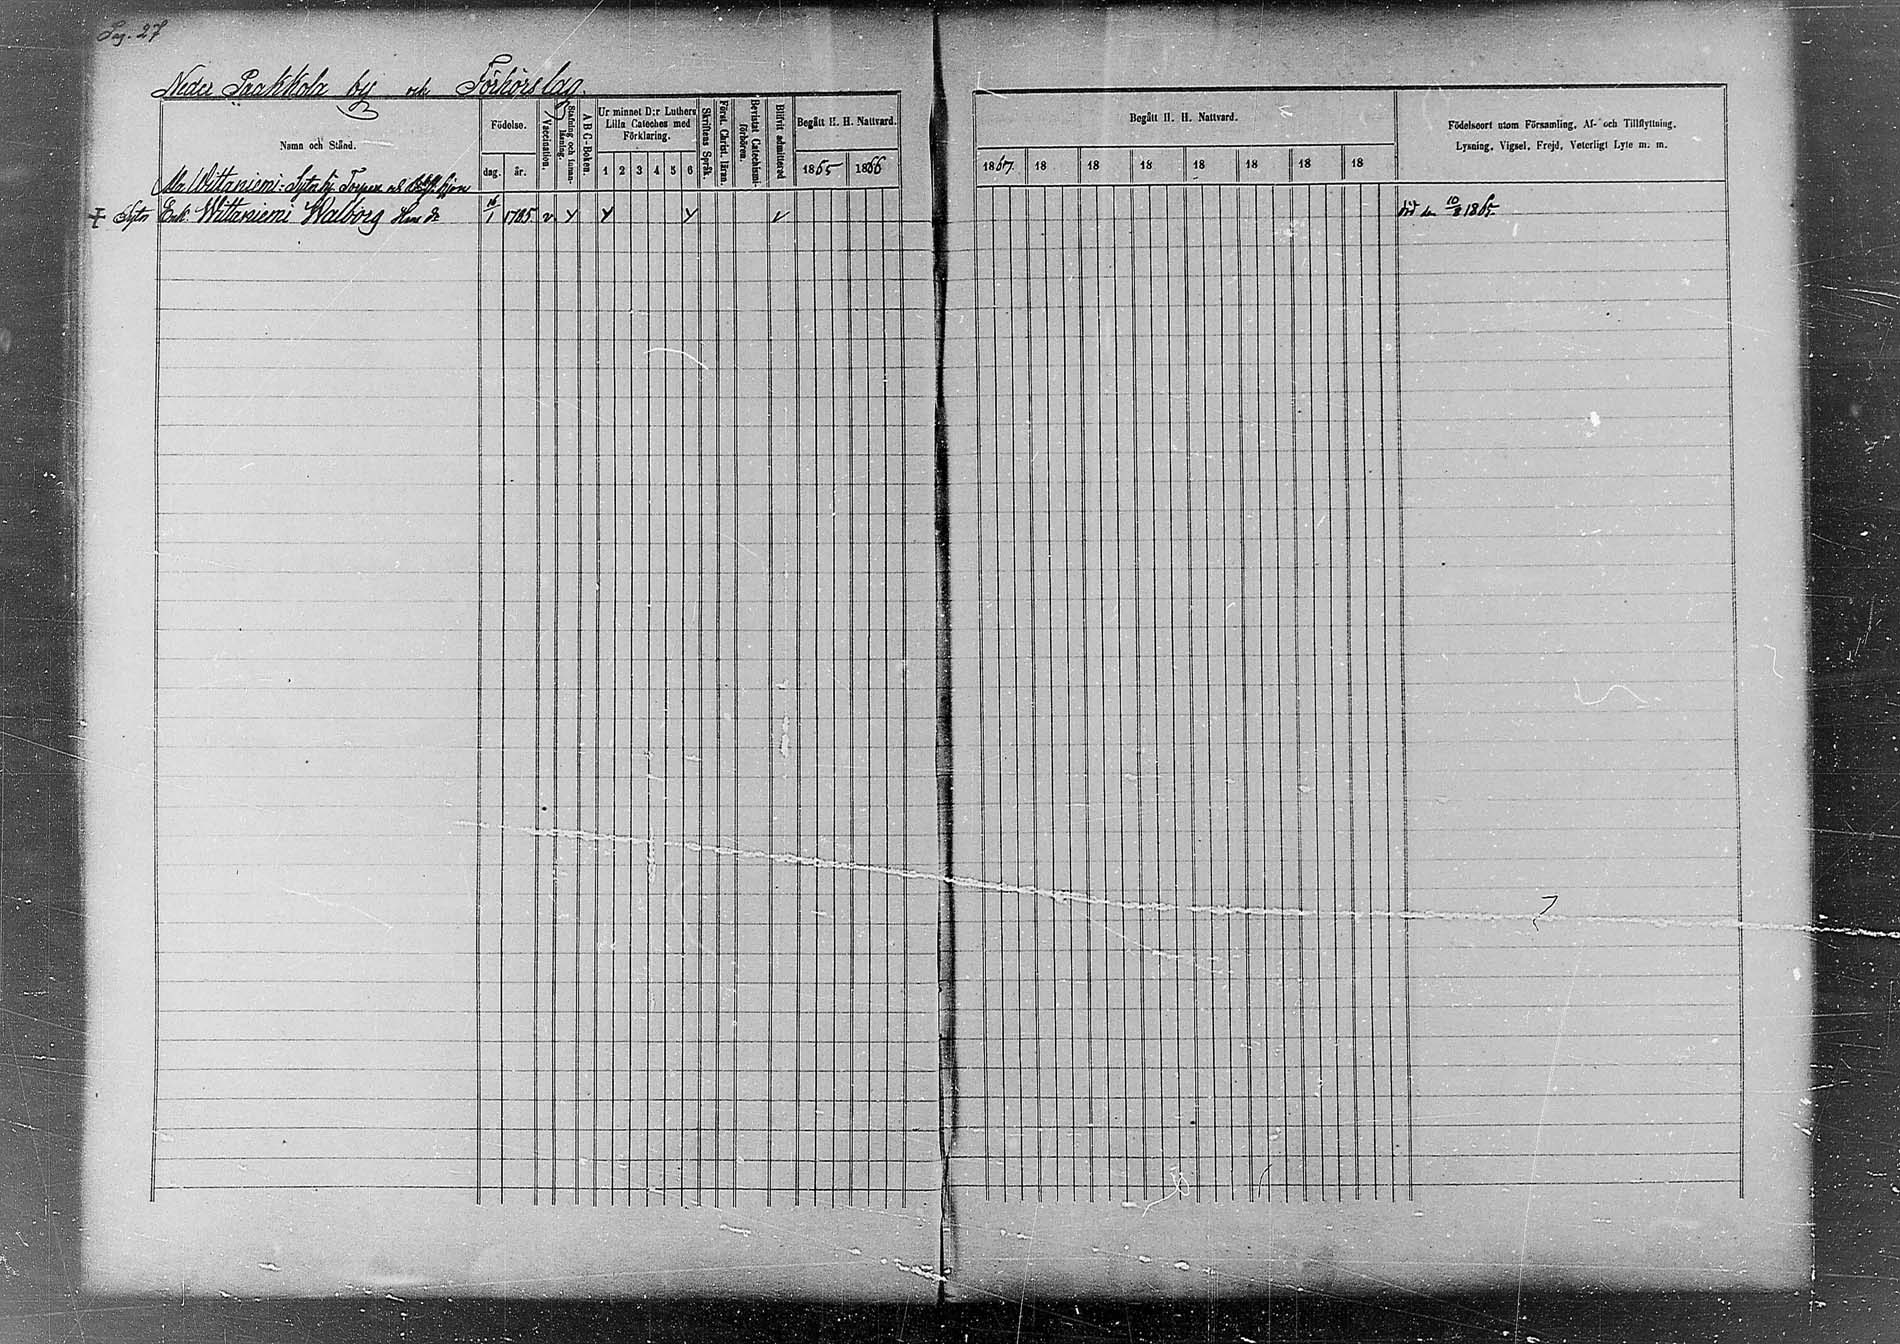 Pag. 27
Neder Paakkola by och Förhörslag.
Namn och Stånd.
Födelse.
dag. år.
Vaccination.
Stafning och innan-läsning.
ABC-Boken.
Ur minnet D:r Luthers Lilla Cateches med Förklaring.
1 2 3 4 5 6
Skriftens Språk.
Först. Christ. läran.
Bevistat Catechismi-förhören.
Blifvit admitterad
Begått H. H. Nattvard.
1865 1866
Begått H. H. Nattvard.
1867 18 18 18 18 18 18 18
Födelseort utom Församling, Af- och Tillflyttning,
Lysning, Vigsel, Frejd, Veterligt Lyte m. m.
Wittaniemi
Enk. Wittaniemi Walborg 16/1 1785 v död den 10/8 1865.